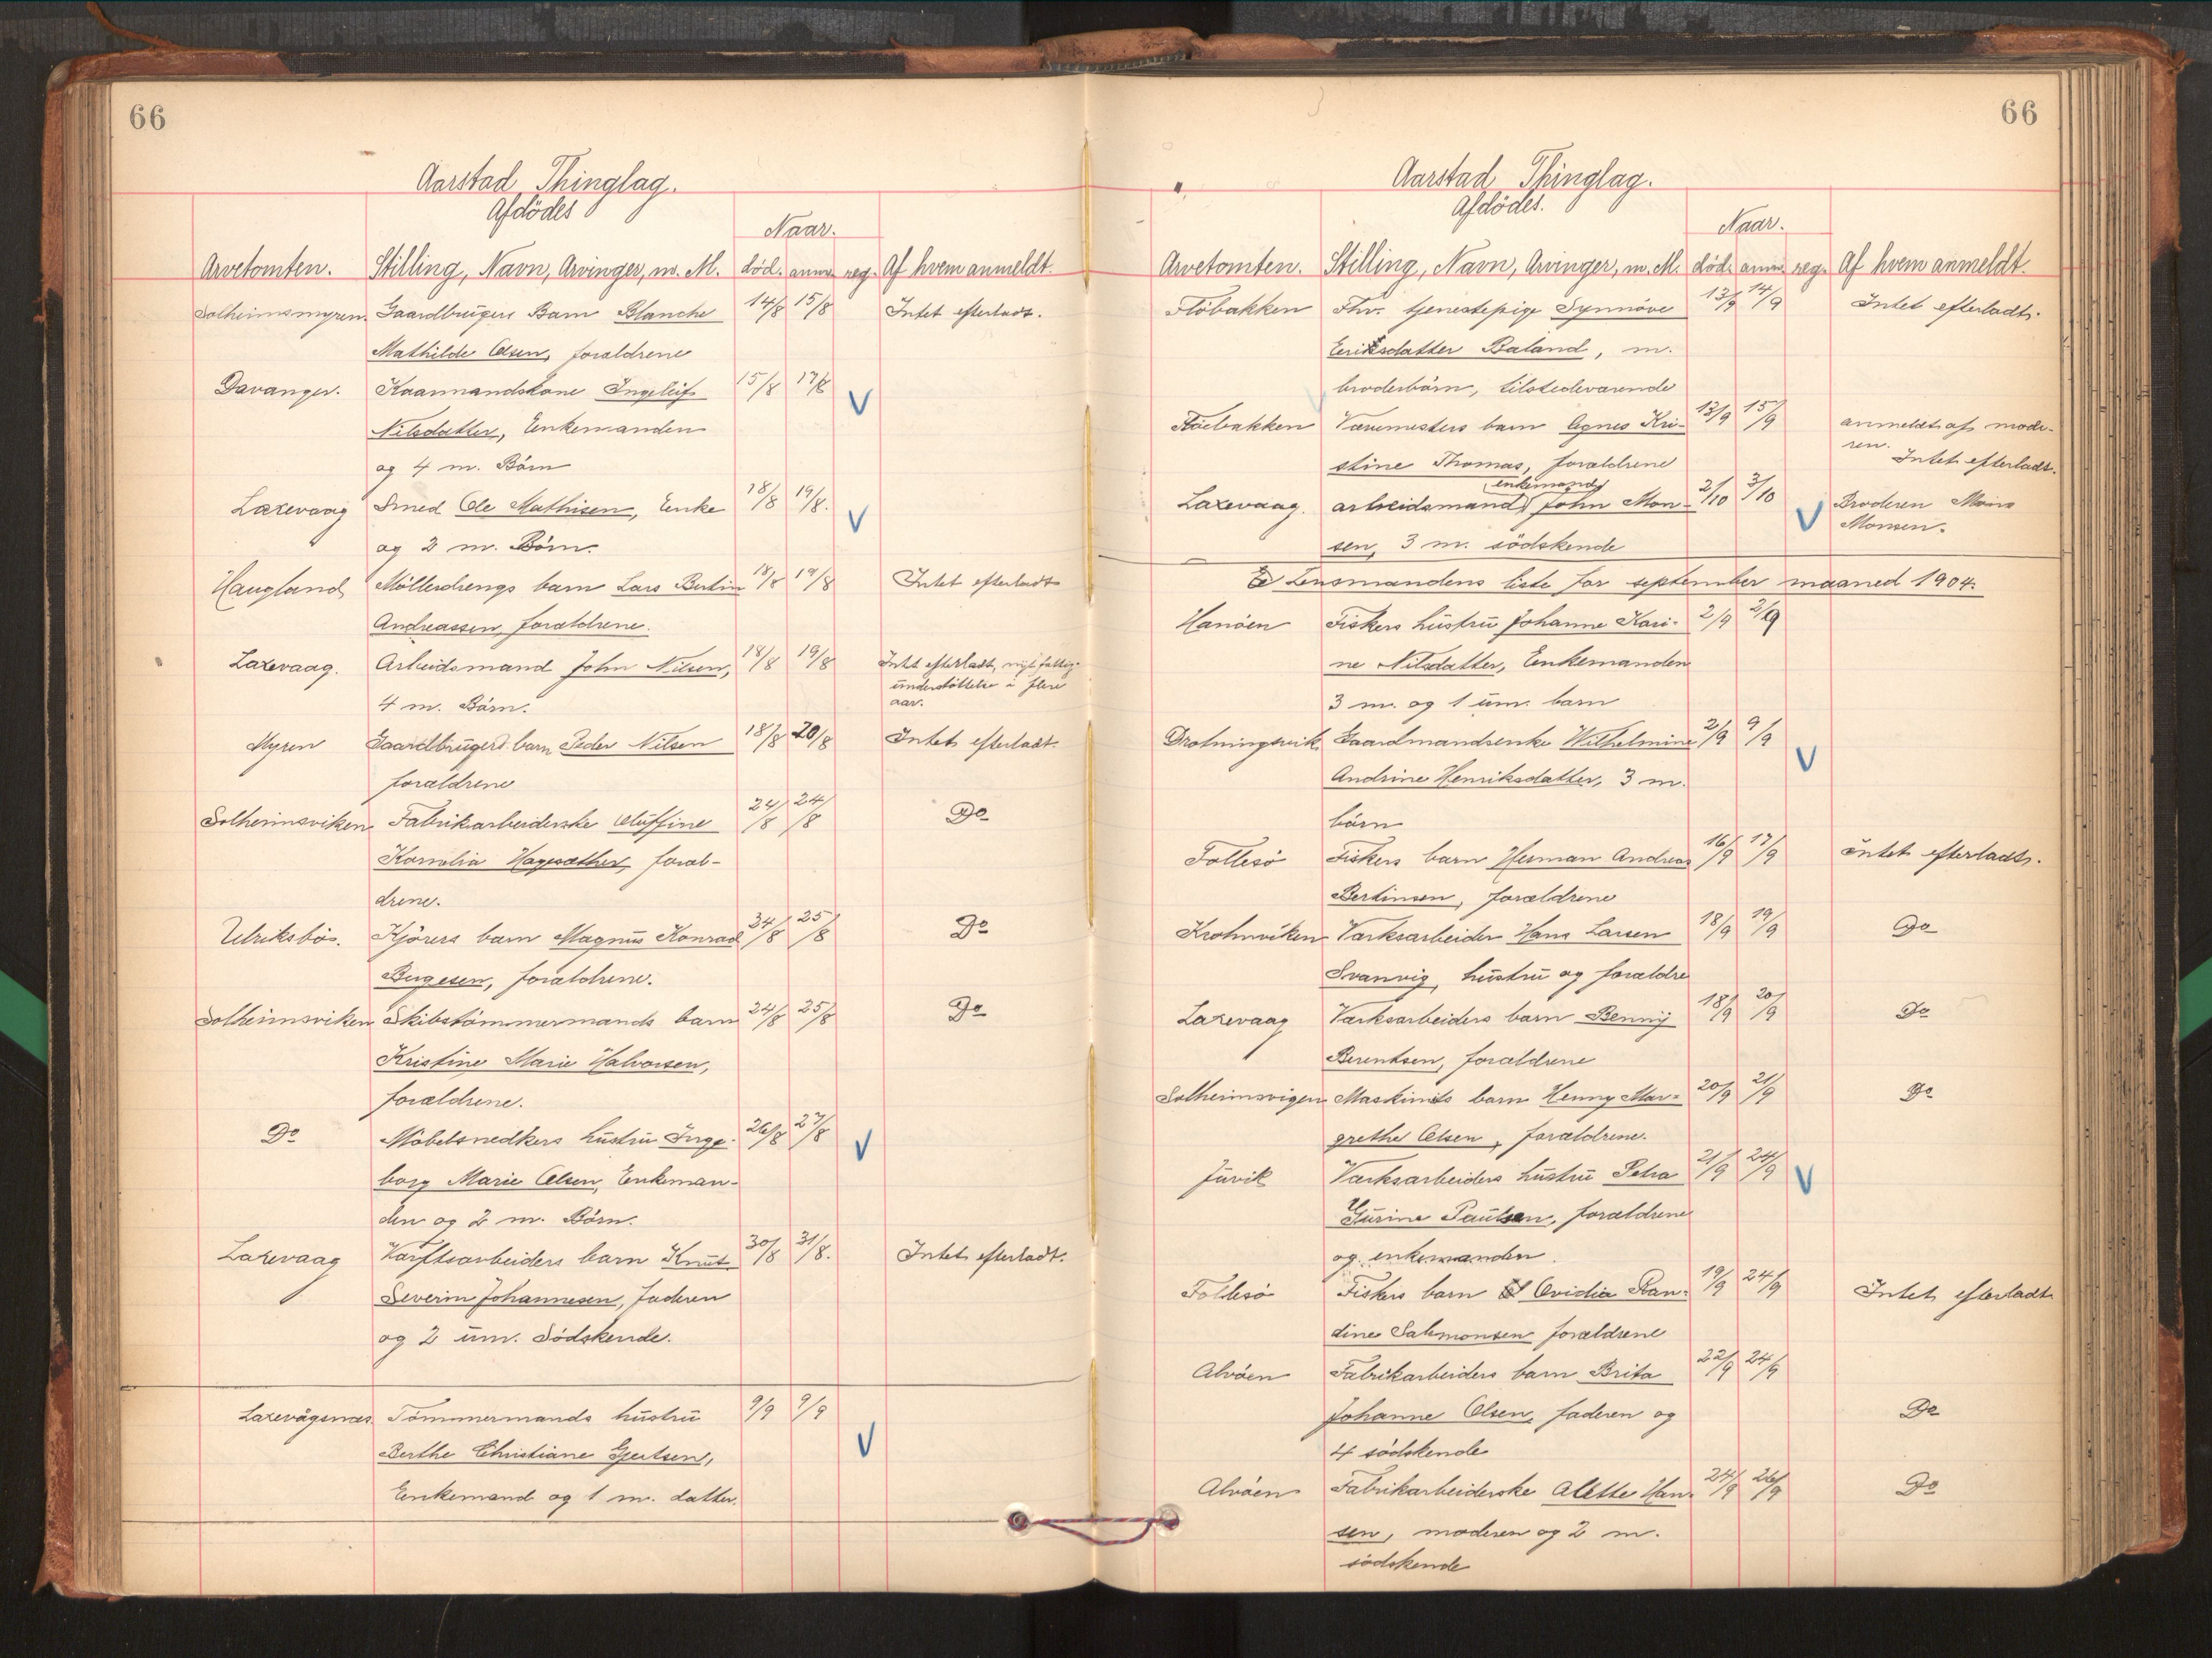 66
Aarstad Thinglag.
Afdödes
Naar.
Arvetomten. Stilling, Navn, Arvinger, m. M. död. anm. reg. Af hvem anmeldt.
Solheimsmyren. Gaardbrugers Barn Blanche 14/8 15/8 Intet efterladt.
Mathilde Olsen, forældrene
Davanger. Kaarmandskone Ingeleif 15/8 17/8 V
Nilsdatter, Enkemanden
og 4 m. Börn
Laxevaag Smed Ole Mathisen, Enke 18/8 19/8. V
og 2 m. Börn.
Haugland Möllerdrengs barn Lars Bertin 18/8 19/8 Intet efterladt
Andreassen, forældrene.
Laxevaag. Arbeidsmand John Nilsen, 18/8 19/8 Intet efterladt, nyt fattig-
understöttelse i flere
4 m. Börn. aar.
Myren Gaardbrugers barn Peder Nilsen 18/8 20/8 Intet efterladt.
forældrene
Solheimsviken Fabrikarbeiderske Oluffine 24/8 24/8 Do
Kornelia Hagesæther, foræl-
drene.
Ulriksbö. Kjörers barn Magnus Konrad 24/8 25/8 Do
Birgesen, forældrene.
Solheimsviken Skibstömmermands barn 24/8 25/8 Do
Kristine Marie Halvorsen,
forældrene.
Do Möbelsnedkers hustru Inge- 26/8 27/8 V
borg Marie Olsen, Enkeman-
den og 2 m. Börn.
Laxevaag Værftsarbeiders barn Knut 30/8 31/8. Intet efterladt.
Severin Johannesen, Faderen
og 2 um. Södskende.
Laxevågsnæs Tömmermands hustru 9/9 9/9 V
Berthe Christiane Gjertsen,
Enkemand og 1 m. datter.
66
Aarstad Thinglag.
Afdödes.
Naar.
Arvetomten. Stilling, Navn, Arvinger, m. M. död. anm. reg. Af hvem anmeldt.
Flöbakken Fhv. tjenestepige Synnöve 13/9 14/9 Intet efterladt.
Eeriksdatter Baland, m.
broderbörn, tilstedeværende
Flöebakken Værmesters barn Agnes Kri- 13/9 15/9 anmeldt af mode-
ren.
stine Thomas, forældrene Intet efterladt.
enkemand
Laxevaag. arbeidsmand John Mon- 2/10 3/10 V Broderen Mons
Monsen.
sen, 3 m. södskende
Lensmandens liste for september maaned 1904.
Hanöen Fiskers hustru Johanne Kari- 2/9 2/9
ne Nilsdatter, Enkemanden
3 m. og 1 um. barn
Drotningsvik Gaardmandsenke Wilhelmine 2/9 9/9 V
Andrine Henriksdatter, 3 m.
börn
Follesö Fiskers barn Herman Andreas 16/9 17/9 intet efterladt.
Bertinsen, forældrene
Krohnviken Værksarbeider Hans Larsen 18/9 19/9 Do
Svanvig, hustru og forældre
Laxevaag Værksarbeiders barn Benny 18/9 20/9 Do
Berentsen, forældrene
Solheimsvigen Maskinists barn Henny Mar- 20/9 21/9 Do
grethe Olsen, forældrene.
Juvik Værksarbeiders hustru Petra 21/9 24/9 V
Gurine Paulsen, forældrene
og enkemanden.
Follesö Fiskers barn Ovidia Ran- 19/9 24/9 Intet efterladt
dine Salomonsen forældrene
Alvöen Fabrikarbeiders barn Brita 22/9 24/9
Johanne Olsen, faderen og Do
4 södskende
Alvöen Fabrikarbeiderske Alette Han- 24/9 26/9 Do
sen, moderen og 2 m.
södskende